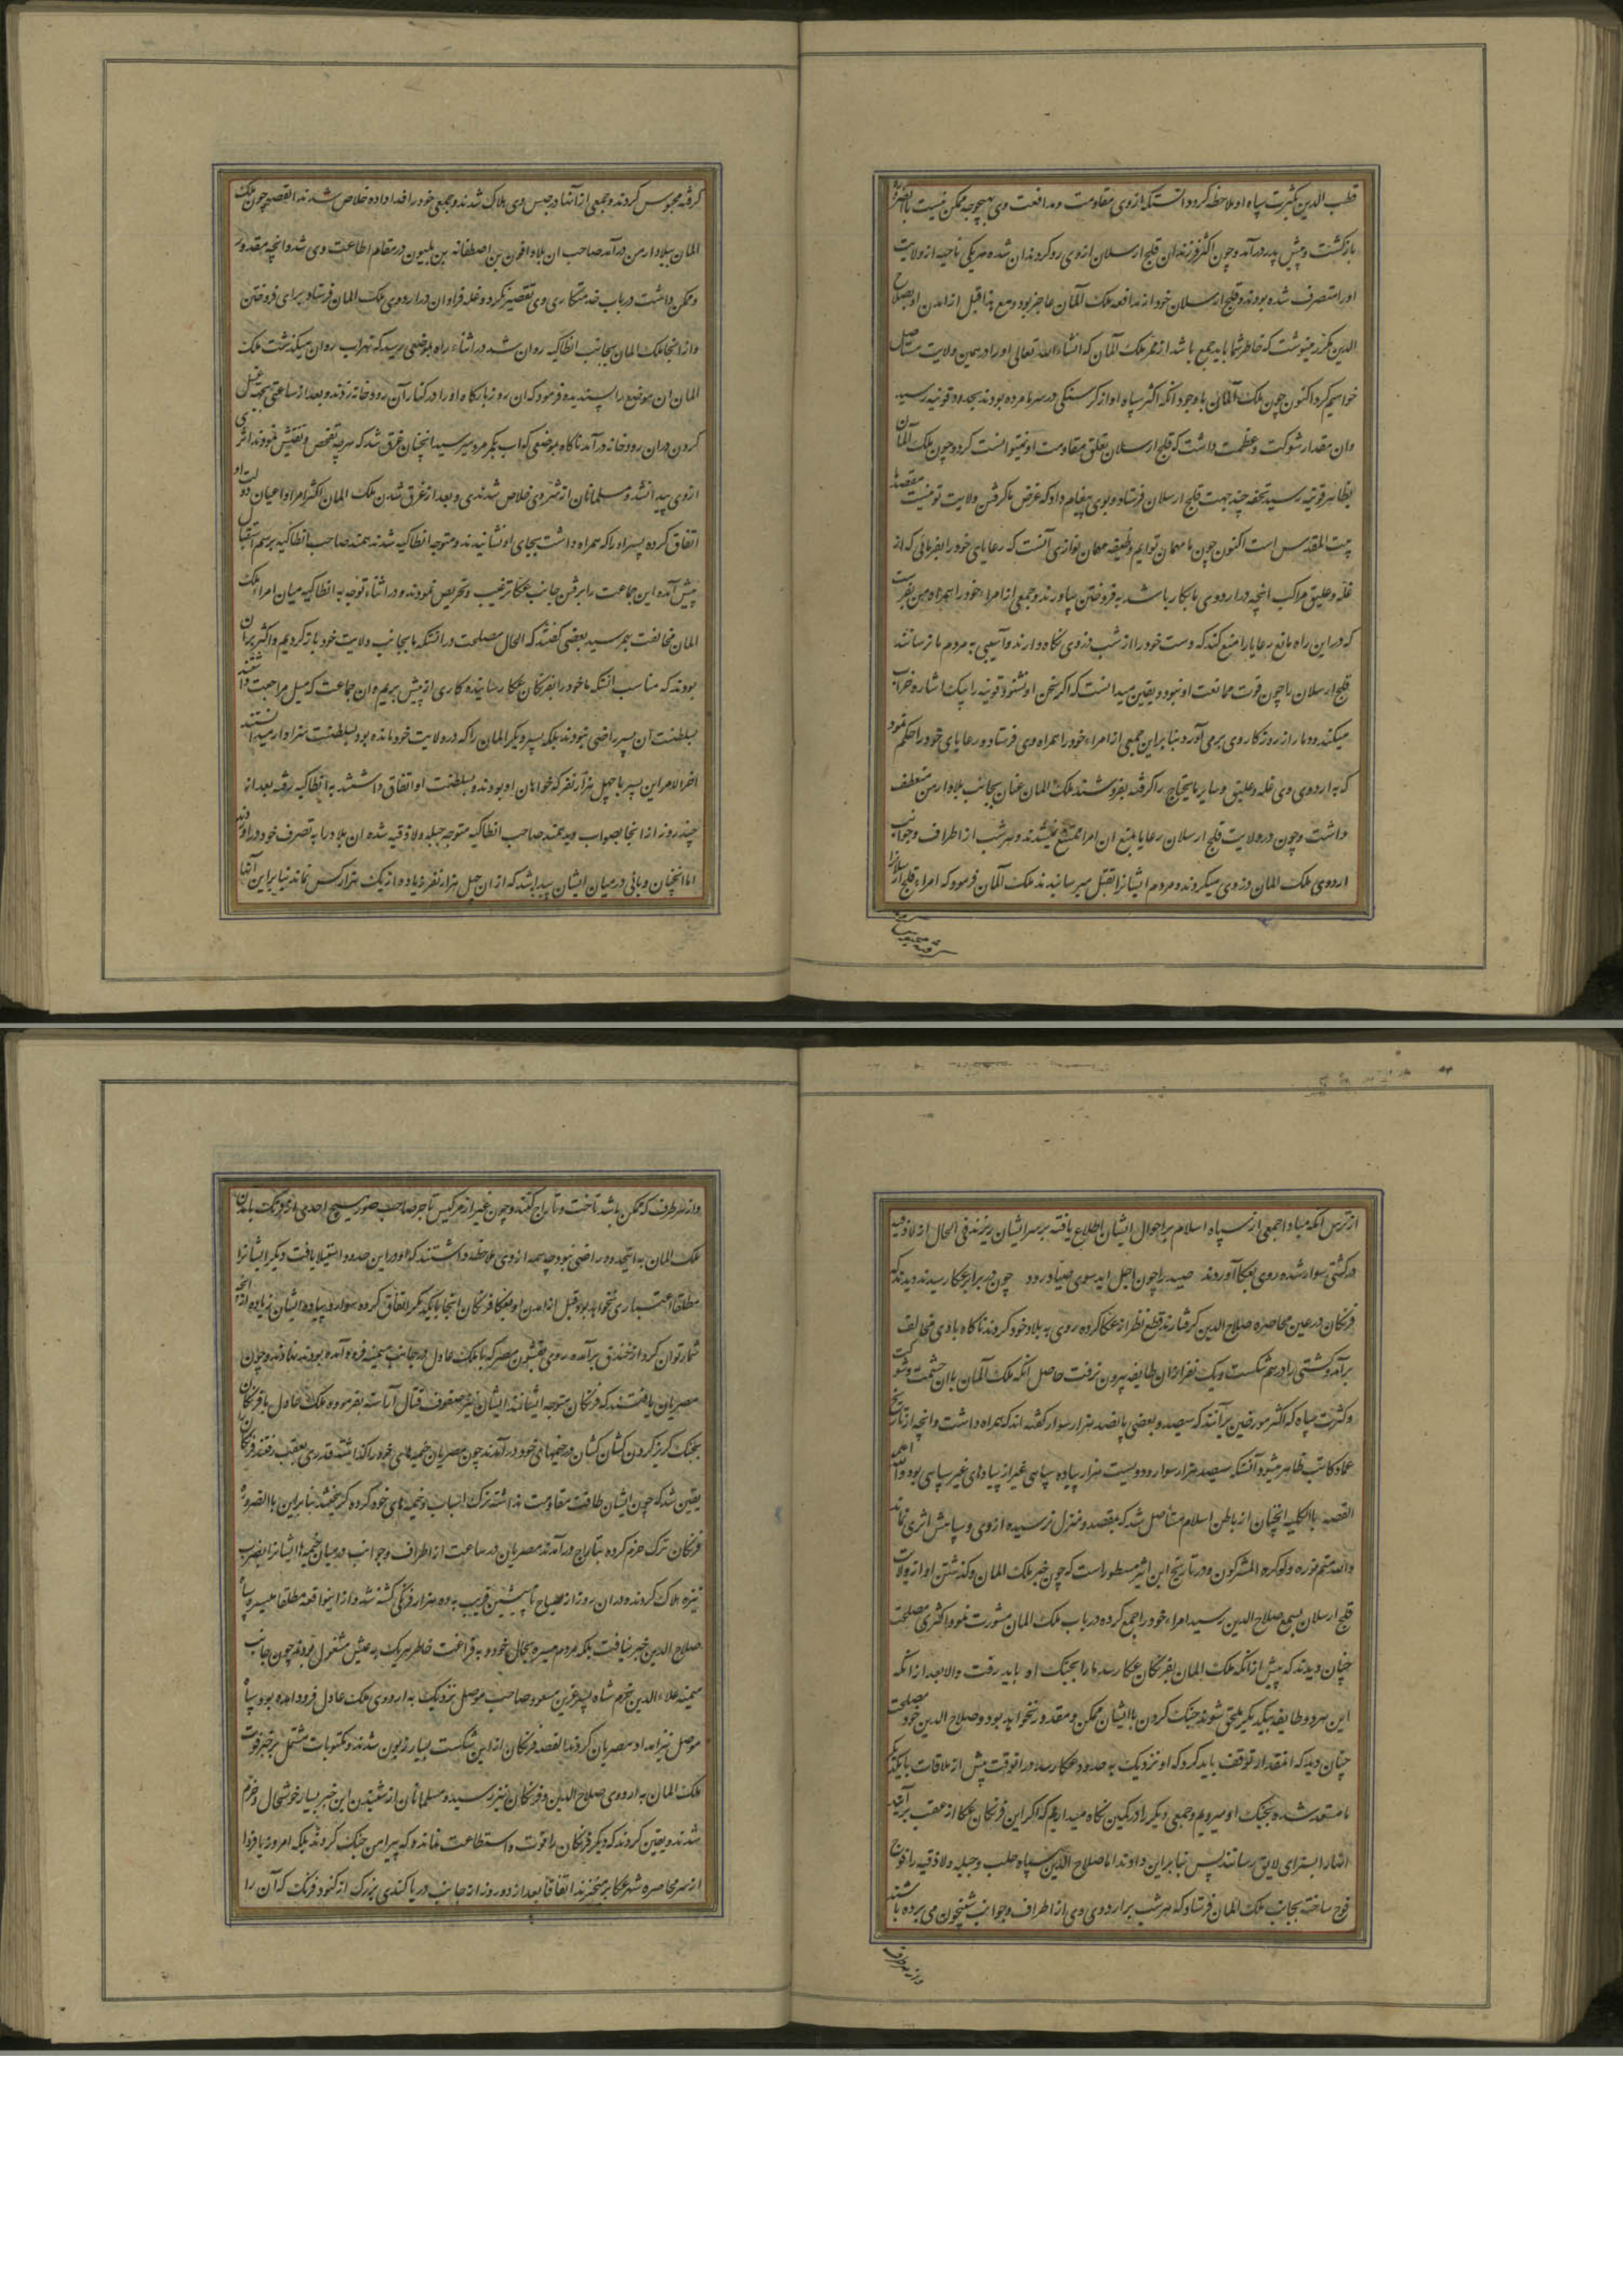 قطب الدین بکثرت سپاه او ملاحظه کرد دانست که از وی مقاومت و مدافعت وی بهیچوجه ممکن نیست بالضرورة
بازگشت و پیش پدر درآمد و چون اکثر فرزندان قلج ارسلان از وی رو گردندان شده هر یکی ناحیه از ولایت
او را متصرف شده بودند و قلج ارسلان خود از مدافعه ملک آلمان عاجز بود و مع هذا قبل از آمدن او بصلاح
الدین مکرر مینوشت که خاطر شما باید جمع باشد از ممر ملک آلمان که انشاء الله تعالی او را در همین ولایت مستاصل
خواهیم کرد اکنون چون ملک آلمان با وجود آنکه اکثر سپاه او از گرسنگی و سرما مرده بودند بحدود قونیه رسید
وان مقدار شوکت و عظمت داشت که قلج ارسلان تعلق مقاومت او نمیتوانست کرد و چون ملک آلمان
بظاهر قونیه رسید تحفه چند بجهت قلج ارسلان فرستاد و بوی پیغام داد که غرض ما گرفتن ولایت تو نیست مقصد ما
بیت المقدس است اکنون چون ما مهمان توایم وظیفه مهمان نوازی آنست که رعایای خود را بفرمائی که از
غله و علیق مراکب آنچه در اردوی ما بکار باشد به فروختن بیاورند و جمعی از امراء خود را همراه من بفرست
که در این راه مانع رعایا را منع کنند که دست خود را از شب دزدی نگاه دارند و آسیبی به مردم ما نرسانند
قلج ارسلان را چون قوت ممانعت او نبود و یقین میدانست که اگر سخن او نشنود قونیه را بیک اشاره خراب
میکند و دمار از روزگار وی برمی آورد بنا براین جمعی از امراء خود را همراه وی فرستاد و رعایای خود را حکم نمود
که به اردوی وی غله و علیق و سایر مایحتاج را گرفته بفروشند ملک المان عنان بجانب بلاد ارمن منعطف
داشت و چون در ولایت قلج ارسلان رعایا بمنع ان امرا ممتنع نمیشدند و هر شب از اطراف و جوانب
اردوی ملک المان دزدی میکردند و مردم ایشانرا بقتل میرسانیدند ملک آلمان فرمود که امراء قلج ارسلانرا
گرفته محبوس
گرفته محبوس کردند و جمعی از آنها در حبس وی هلاک شدند و جمعی خود را فدا داده خلاص شدند القصه چون ملک
المان ببلاد ارمن درآمد صاحب ان بلاد لافون بن اصطفانه بن بلیون در مقام اطاعت وی شد و آنچه مقدور
و ممکن داشت در باب خدمتکاری وی تقصیر نکرد و غله فراوان در اردوی ملک المان فرستاد برای فروختن
و از آنجا ملک المان بجانب انطاکیه روان شد در اثناء راه بموضعی رسید که نهر آب روان میگذشت ملک
المان ان موضع را پسندیده فرمود که ان روز بارگاه او را در کنار آن رودخانه زدند و بعد از ساعتی بجهة غسل
کردن دران رودخانه درآمد ناگاه بموضعی که آب بکمر مرد میرسید آنچنان غرق شد که هر چه تفحص و تفتیش نمودند اثری
از وی پیدا نشد و مسلمانان از شر وی خلاص شدند و بعد از غرق شدن ملک المان اکثر امرا و اعیان دولت او
اتفاق کرده پسر او را که همراه داشت بجای او نشانیدند و متوجه انطاکیه شدند سمند صاحب انطاکیه برسم استقبال
پیش آمده این جماعت را برفتن جانب عکا ترغیب و تحریص نمودند و در اثناء توجه به انطاکیه میان امراء ملک
المان مخالفت بهم رسید بعضی گفتند که الحال مصلحت در انستکه ما بجانب ولایت خود باز گردیم و اکثر بران
بودند که مناسب انستکه ما خود را بفرنگان عکا رسانیده کاری از پیش بریم و ان جماعت که میل مراجعت داشتند
بسلطنت ان پسر راضی نبودند بلکه پسر دیگر المان را که در ولایت خود مانده بود بسلطنت سزاوار میدانستند
اخر الامر این پسر با چهل هزار نفر که خواهان او بودند و بسلطنت او اتفاق داشتند به انطاکیه رفته بعد از
چند روز از انجا بصواب دید سمند صاحب انطاکیه متوجه جبله و لاذقیه شده ان بلاد را به تصرف خود درآوردند
اما آنچنان وبائی در میان ایشان پیدا شد که از ان چهل هزار نفر زیاده از یک هزار کس نماند بنا براین آنها
از ترس آنکه مبادا جمعی از سپاه اسلام بر احوال ایشان اطلاع یافته بر سر ایشان ریزند فی الحال از لاذقیه
در کشتی سوار شده روی بعکا آوردند صید را چون اجل آید سوی صیاد رود چون در برابر عکا رسیدند دیدند که
فرنگان در عین محاصره صلاح الدین گرفتارند قطع نظر از عکا کرده روی به بلاد خود کردند ناگاه باد مخالف
برآمد و کشتی را در هم شکست و یک نفر از ان طایفه بیرون نرفت حاصل آنکه ملک آلمان با ان حشمت و شوکت
و کثرت سپاه که اکثر مورخین برآنند که سیصد و بعضی پانصد هزار سوار گفته اند که همراه داشت و آنچه از تاریخ
عماد کاتب ظاهر میشود آنستکه سیصد هزار سوار و دویست هزار پیاده سپاهی غیر از پیادهای غیر سپاهی بود والله اعلم
القصه بالکلیه انچنان از باطن اسلام مستاصل شد که بمقصد و منزل نرسیده از وی و سپاهش اثری نماند
والله متم نوره ولو کره المشرکون و در تاریخ ابن اثیر مسطور است که چون خبر ملک المان و گذشتن او از ولایت
قلج ارسلان بسمع صلاح الدین رسید امراء خود را جمع کرده در باب ملک المان مشورت نمود اکثری مصلحت
چنان دیدند که پیش از آنکه ملک المان بفرنگان عکا رسد ما را بجنگ او باید رفت والا بعد از انکه
این هر دو طایفه بیکدیگر ملحق شوند جنگ کردن با ایشان ممکن و مقدور نخواهد بود و صلاح الدین خود مصلحت
چنان دید که انمقدار توقف باید کرد که او نزدیک به حدود عکا رسد در انوقت پیش از ملاقات با یکدیگر
ما مستعد شده بجنگ او میرویم و جمعی دیگر را در کمین نگاه میداریم که اگر این فرنگان عکا از عقب برآیند
انها را بسزای لایق رسانند پس بنا براین داوند اما صلاح الدین سپاه حلب و جبله و لاذقیه را فوج
فوج ساخته بجانب ملک المان فرستاد که هر شب بر اردوی وی از اطراف و جوانب شبیخون می برده باشند
و از هر طرف
و از هر طرف که ممکن باشد تاخت و تاراج کنند و چون غیر از مرکیس تاجر صاحب صور هیچ احدی از فرنگ بآمدن
ملک المان به اینحدود راضی نبود چه همه از وی ملاحظه داشتند که او در این حدود استیلا یافت دیگر ایشانرا
مطلقا اعتباری نخواهد بود قبل از آمدن او بعکا فرنگان انجا با یکدیگر اتفاق کرده سوار و پیاده ایشان زیاده از آنچه
شمار توان کرد از خندق برآمده روی بقشون مصر که با ملک عادل در جانب میمنه فرود آمده بودند نهادند و چون
مصریان یافتند که فرنگان متوجه ایشانند ایشان نیز صفوف قتال آراسته بفرموده ملک عادل با فرنگان
بجنگ گریز کردن کشان کشان در خیمهای خود درآمدند چون مصریان خیمهای خود را گذاشته قدری بعقب رفتند فرنگان را
یقین شد که چون ایشان طاقت مقاومت نداشته ترک اسباب و خیمه های خود کرده گریختند بنا براین بالضروره
فرنگان ترک حزم کرده بتاراج درآمدند مصریان در ساعت از اطراف و جوانب در میان خیمه ها ایشانرا بضرب
نیزه هلاک کردند و دران روز از صباح تا پیشین قریب به ده هزار فرنگی کشته شد و از اینواقعه مطلقا میسره سپاه
صلاح الدین خبر نیافت بلکه مردم میسره بحال خود و به فراغت خاطر هر یک به عیش مشغول بودند چون جانب
میمنه علاء الدین خرم شاه پسر عزالدین مسعود صاحب موصل نزدیک به اردوی ملک عادل فرود آمده بود سپاه
موصل نیز امداد مصریان کردند القصه فرنگان از این شکست بسیار زبون شدند و مکتوبات مشتمل بر خبر فوت
ملک المان به اردوی صلاح الدین و فرنگان نیز رسید و مسلمانان از شنیدن این خبر بسیار خوشحال و خرم
شدند و یقین کردند که دیگر فرنگان را قوت و استطاعت نماند و که پیرامن جنگ گردند بلکه امروز یا فردا
از سر محاصره شهر عکا برمیخیزند اتفاقا بعد از دو روز از جانب دریا کندی بزرگ از کنود فرنگ که آن را